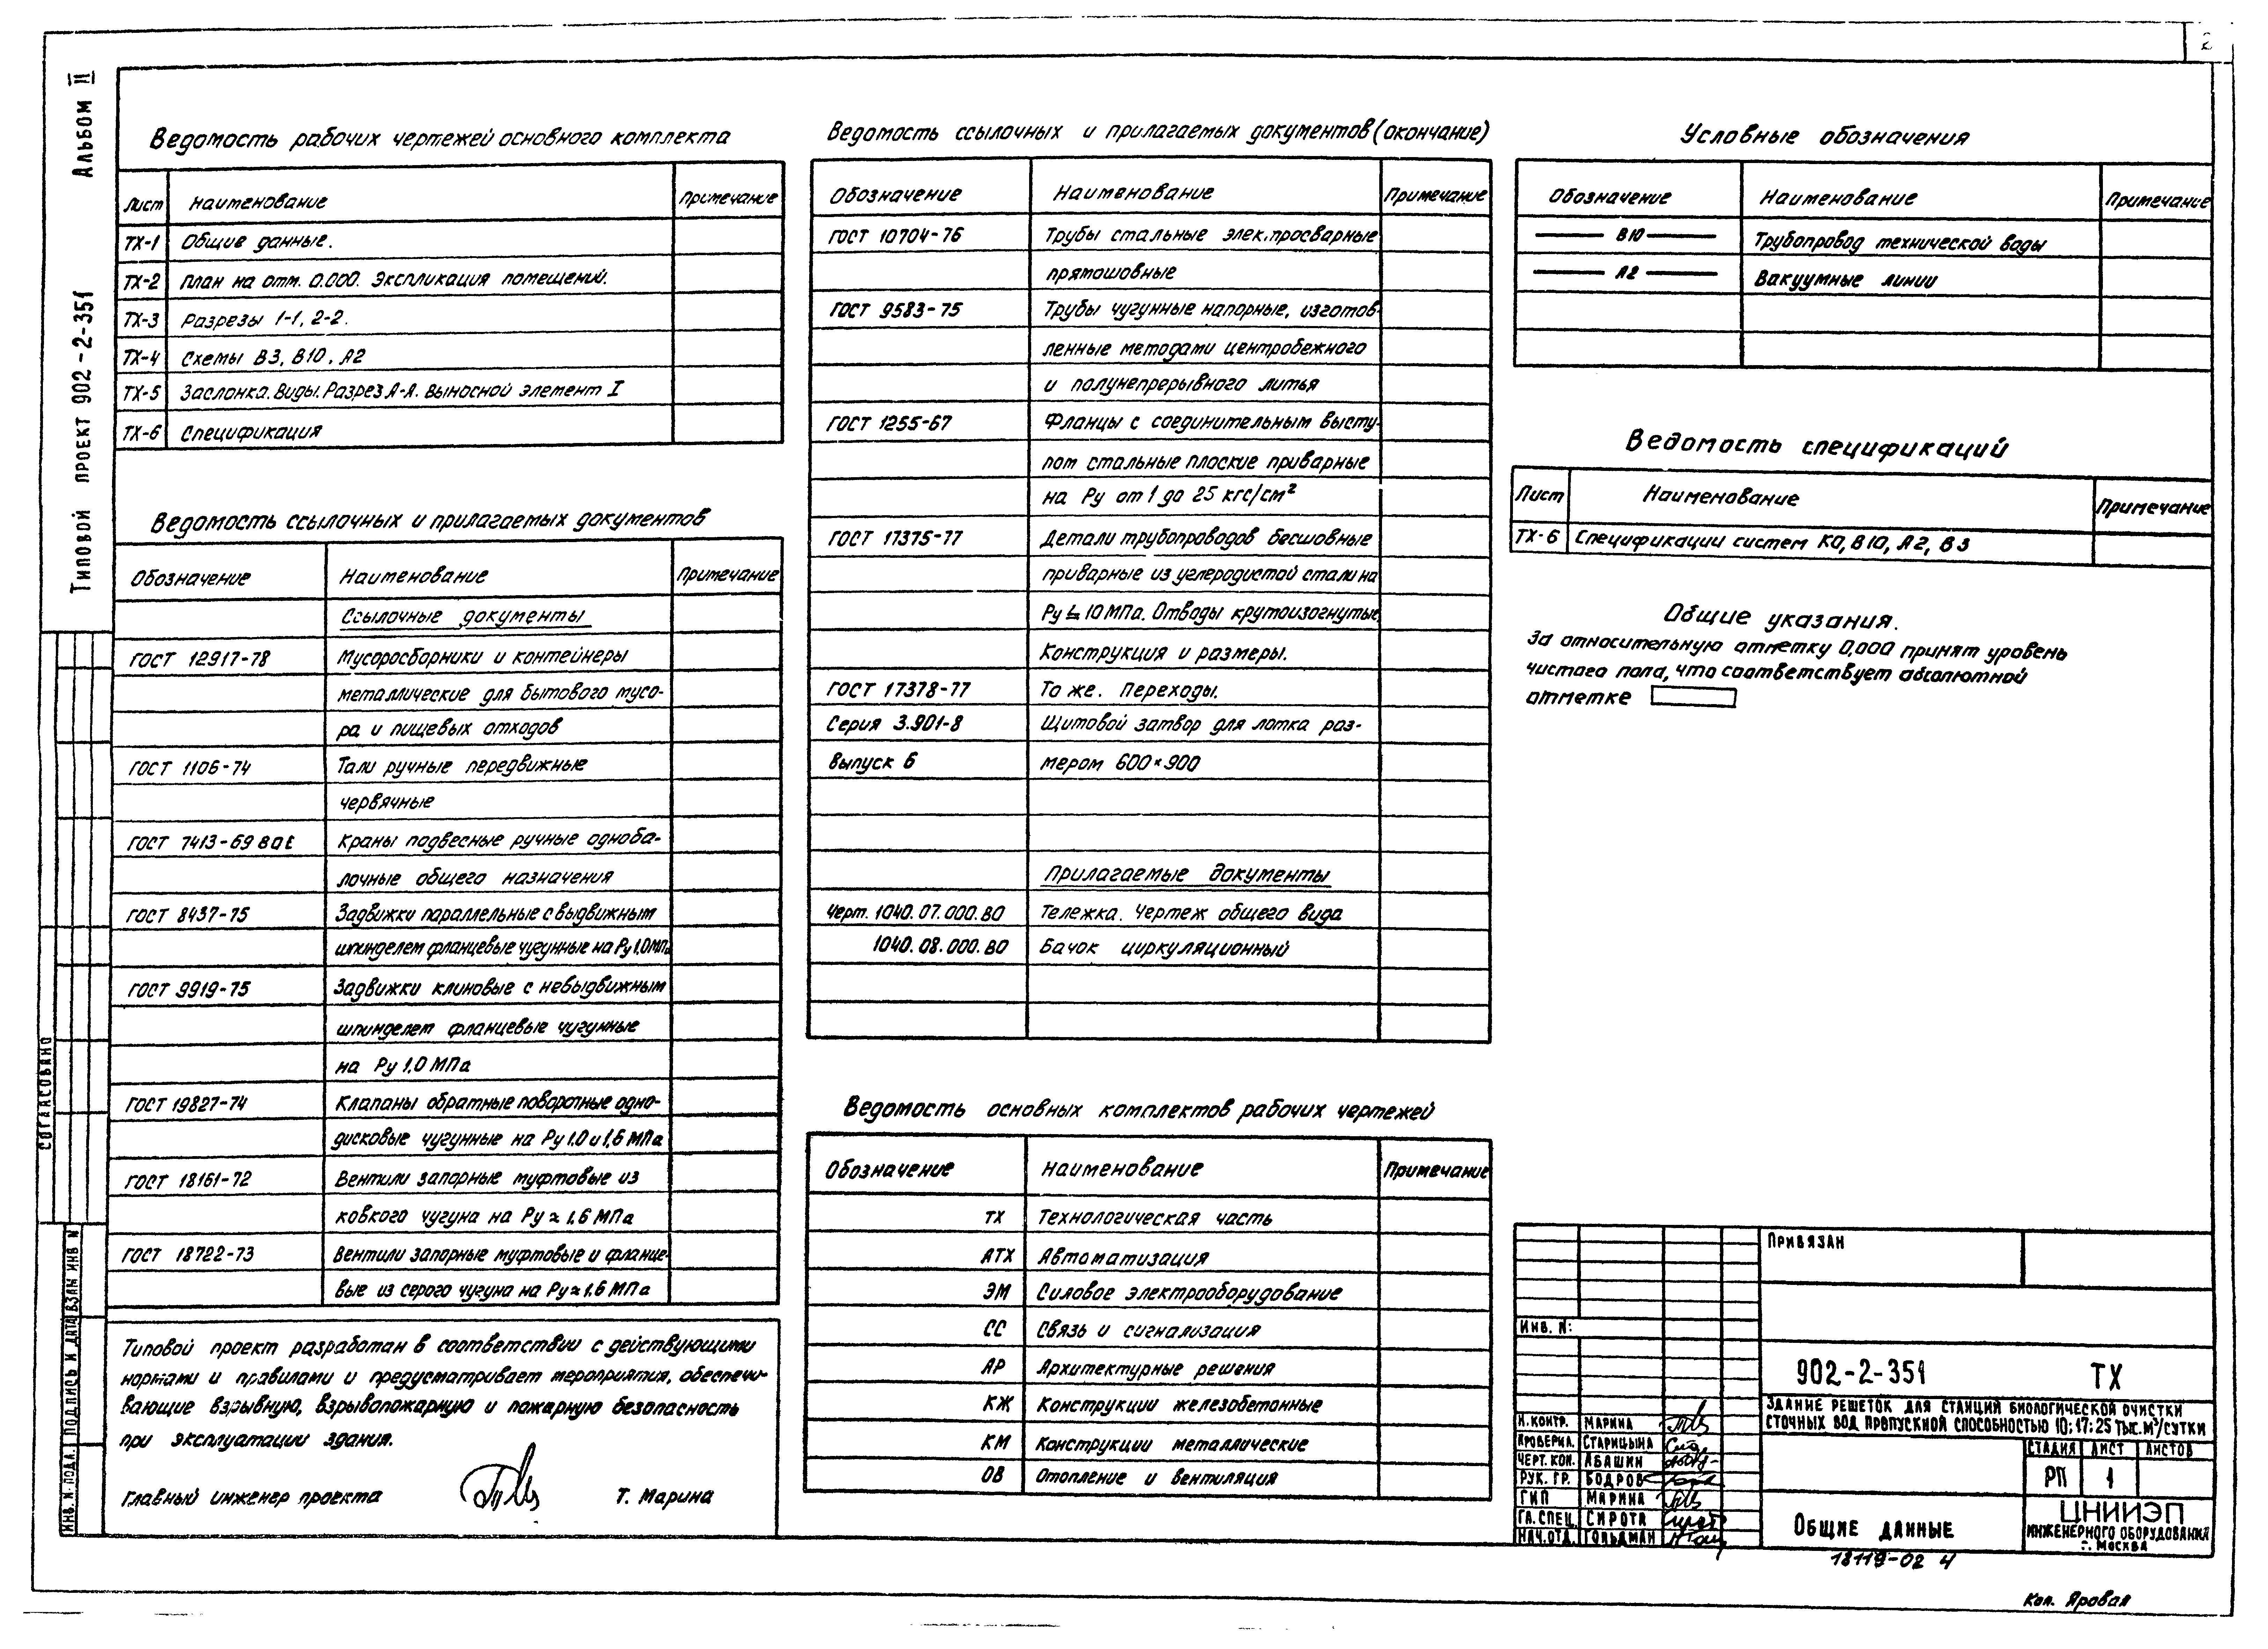 2
Альбом II
Типовой проект 902-2-351
СОГЛАСОВАНО
ИНВ. N ПОДЛ. ПОДПИСЬ И ДАТА ВЗАМ ИНВ N
Ведомость рабочих чертежей основного комплекта
Лист Наименование Примечание
ТХ-1 Общие данные.
ТХ-2 План на отм. 0.000. Экспликация помещений.
ТХ-3 Разрезы 1-1, 2-2.
ТХ-4 Схемы В3, В10, А2
ТХ-5 Заслонка. Виды. Разрез А-А. Выносной элемент I
ТХ-6 Спецификация
Ведомость ссылочных и прилагаемых документов
Обозначение Наименование Примечание
Ссылочные документы
ГОСТ 12917-78 Мусоросборники и контейнеры
металлические для бытового мусо-
ра и пищевых отходов
ГОСТ 1106-74 Тали ручные передвижные
червячные
ГОСТ 7413-69 Краны подвесные ручные одноба-
лочные общего назначения
ГОСТ 8437-75 Задвижки параллельные с выдвижным
шпинделем фланцевые чугунные на Ру 1.0 МПа
ГОСТ 9919-75 Задвижки клиновые с невыдвижным
шпинделем фланцевые чугунные
на Ру 1,0 МПа
ГОСТ 19827-74 Клапаны обратные поворотные одно-
дисковые чугунные на Ру 1.0 и 1,6 МПа
ГОСТ 18161-72 Вентили запорные муфтовые из
ковкого чугуна на Ру ≈ 1.6 МПа
ГОСТ 18722-73 Вентили запорные муфтовые и фланце-
вые из серого чугуна на Ру ≈ 1.6 МПа
Типовой проект разработан в соответствии с действующими
нормами и правилами и предусматривает мероприятия, обеспечи-
вающие взрывную, взрывопожарную и пожарную безопасность
при эксплуатации здания.
Главный инженер проекта Т. Марина
Ведомость ссылочных и прилагаемых документов (окончание)
Обозначение Наименование Примечание
ГОСТ 10704-76 Трубы стальные электросварные
прямошовные
ГОСТ 9583-75 Трубы чугунные напорные, изготов-
ленные методами центробежного
и полунепрерывного литья
ГОСТ 1255-67 Фланцы с соединительным высту-
пом стальные плоские приварные
на Ру от 1 до 25 кгс/см²
ГОСТ 17375-77 Детали трубопроводов бесшовные
приварные из углеродистой стали на
Ру ≤ 10 МПа. Отводы крутоизогнутые.
Конструкция и размеры.
ГОСТ 17378-77 То же. Переходы.
Серия 3.901-8 Щитовой затвор для лотка раз-
выпуск 6 мером 600×900
Прилагаемые документы
Черт. 1040.07.000.ВО Тележка. Чертеж общего вида
1040.08.000.ВО Бачок циркуляционный
Ведомость основных комплектов рабочих чертежей
Обозначение Наименование Примечание
ТХ Технологическая часть
АТХ Автоматизация
ЭМ Силовое электрооборудование
СС Связь и сигнализация
АР Архитектурные решения
КЖ Конструкции железобетонные
КМ Конструкции металлические
ОВ Отопление и вентиляция
Условные обозначения
Обозначение Наименование Примечание
В10 Трубопровод технической воды
А2 Вакуумные линии
Ведомость спецификаций
Лист Наименование Примечание
ТХ-6 Спецификации систем К0, В10, А2, В3
Общие указания.
За относительную отметку 0,000 принят уровень
чистого пола, что соответствует абсолютной
отметке
Привязан
Инв. N:
902-2-351 ТХ
Здание решеток для станций биологической очистки
сточных вод пропускной способностью 10; 17; 25 тыс. м³/сутки
Н. контр. Марина
Проверил. Старицына
Черт. кон. Абашин
Рук. гр. Бодров
ГИП Марина
Гл. спец. Сирота
Нач. отд. Гольдман
Стадия Лист Листов
РП 1
Общие данные
ЦНИИЭП
инженерного оборудования
г. Москва
18119-02 4
Кол. Яровая